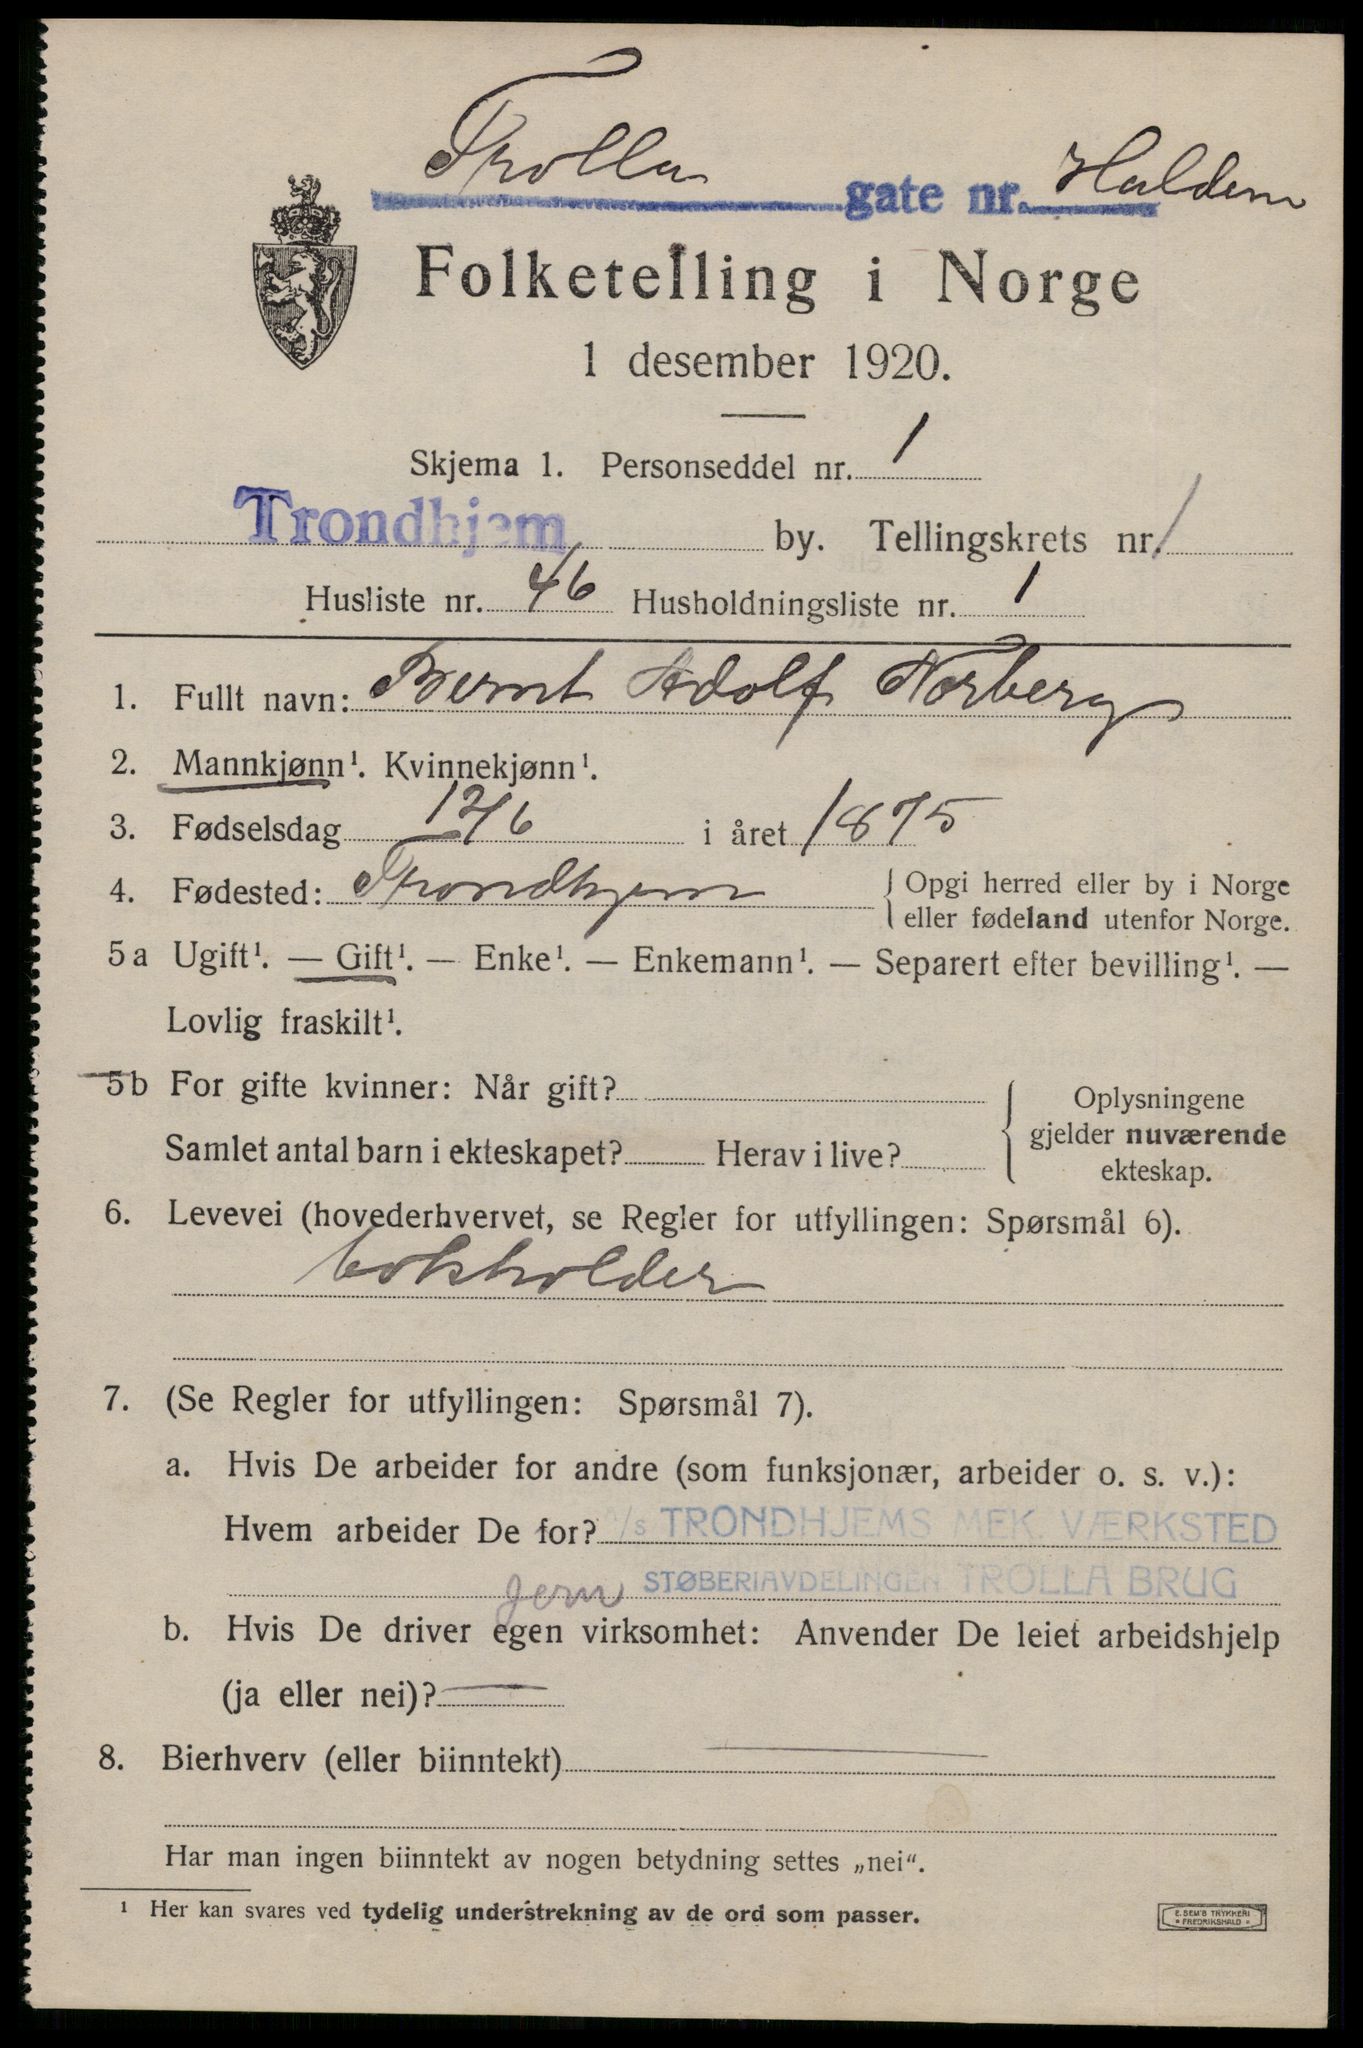 Trolla gate nr. Halden
Folketelling i Norge
1 desember 1920.
Skjema 1. Personseddel nr. 1
Trondhjem by. Tellingskrets nr. 1
Husliste nr. 46 Husholdningsliste nr. 1
1. Fullt navn: Bernt Adolf Norberg
2. Mannkjønn¹. Kvinnekjønn¹.
3. Fødselsdag 12/6 i året 1875
4. Fødested: Trondhjem { Opgi herred eller by i Norge
eller fødeland utenfor Norge.
5 a Ugift¹. — Gift¹. — Enke¹. — Enkemann¹. — Separert efter bevilling¹. —
Lovlig fraskilt¹.
5 b For gifte kvinner: Når gift? { Oplysningene
gjelder nuværende
Samlet antal barn i ekteskapet? Herav i live? ekteskap.
6. Levevei (hovederhvervet, se Regler for utfyllingen: Spørsmål 6).
bokholder
7. (Se Regler for utfyllingen: Spørsmål 7).
a. Hvis De arbeider for andre (som funksjonær, arbeider o. s. v.):
Hvem arbeider De for? A/S TRONDHJEMS MEK. VÆRKSTED
jern STØBERIAVDELINGEN TROLLA BRUG
b. Hvis De driver egen virksomhet: Anvender De leiet arbeidshjelp
(ja eller nei)? —
8. Bierhverv (eller biinntekt) —
Har man ingen biinntekt av nogen betydning settes „nei“.
¹ Her kan svares ved tydelig understrekning av de ord som passer.
E. SEM'S TRYKKERI
FREDRIKSHALD